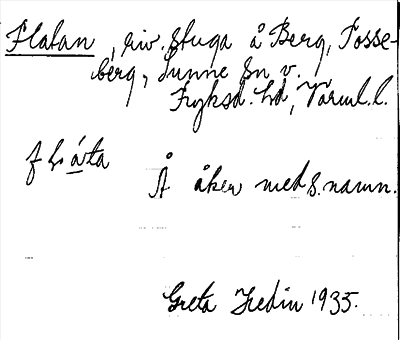 Flatan, riv. stuga å Berg, Posse-
berg, Sunne sn v.
Fryksd. hd, Värml. l.
Å åker med s. namn.
Greta Hedin 1935.